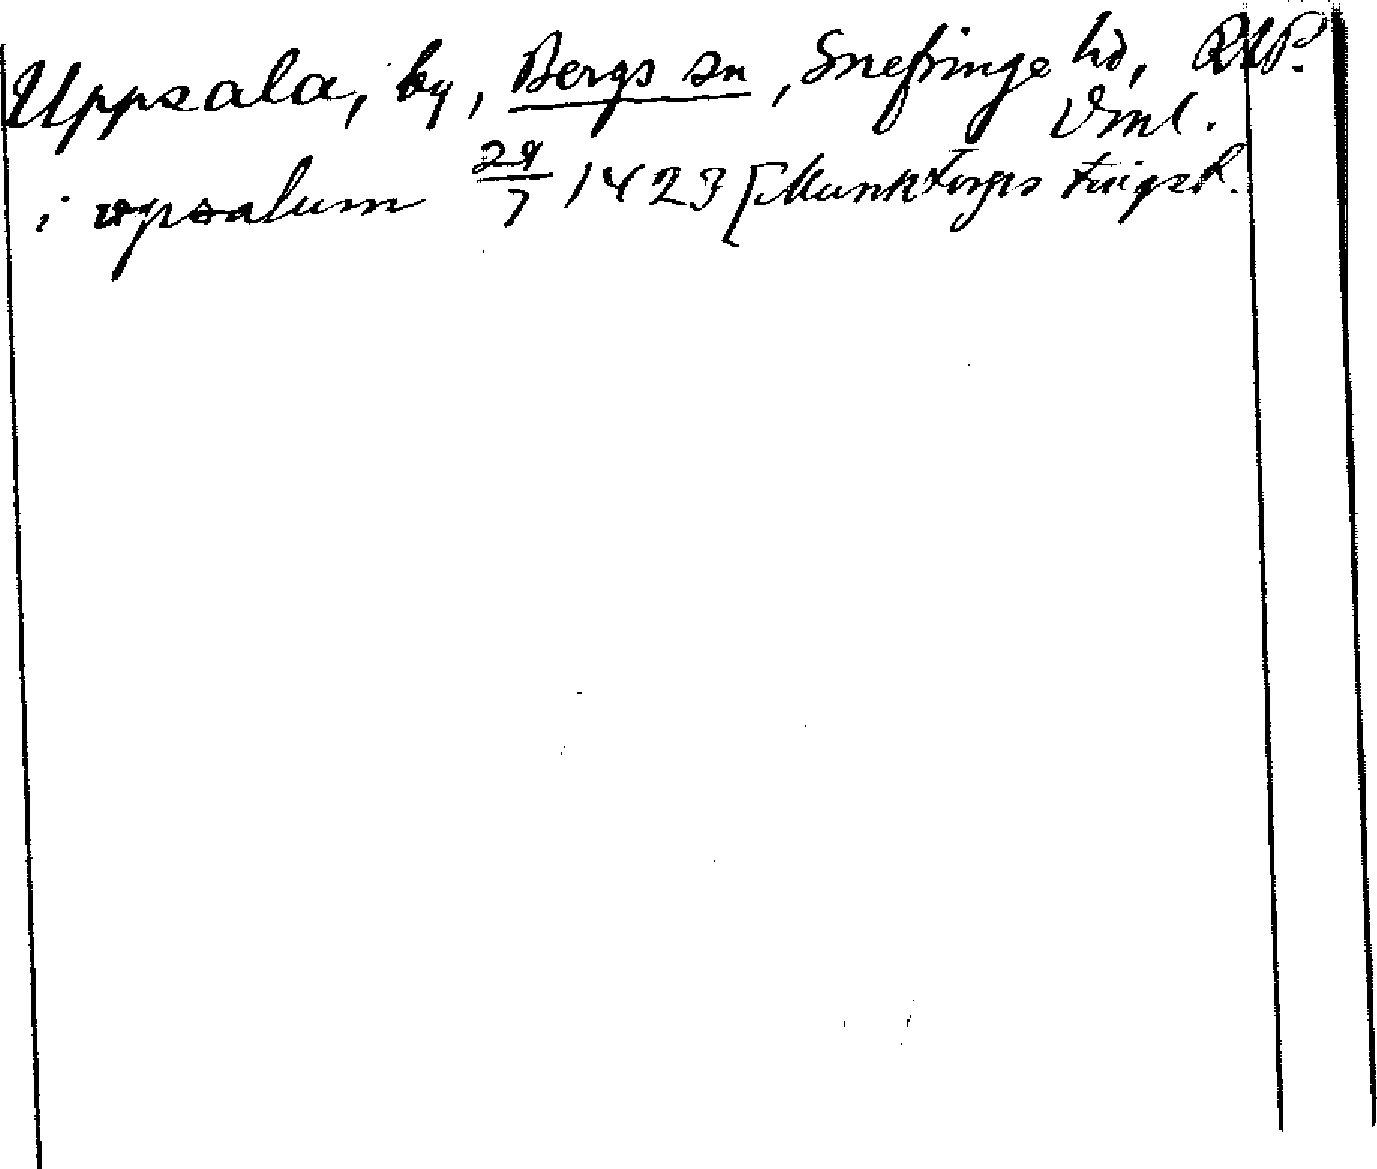 Uppsala, by, Bergs sn, Snefringe hd, RAP.
Vml.
i vpsalum 29/7 1423 [Munktorps tingsl.